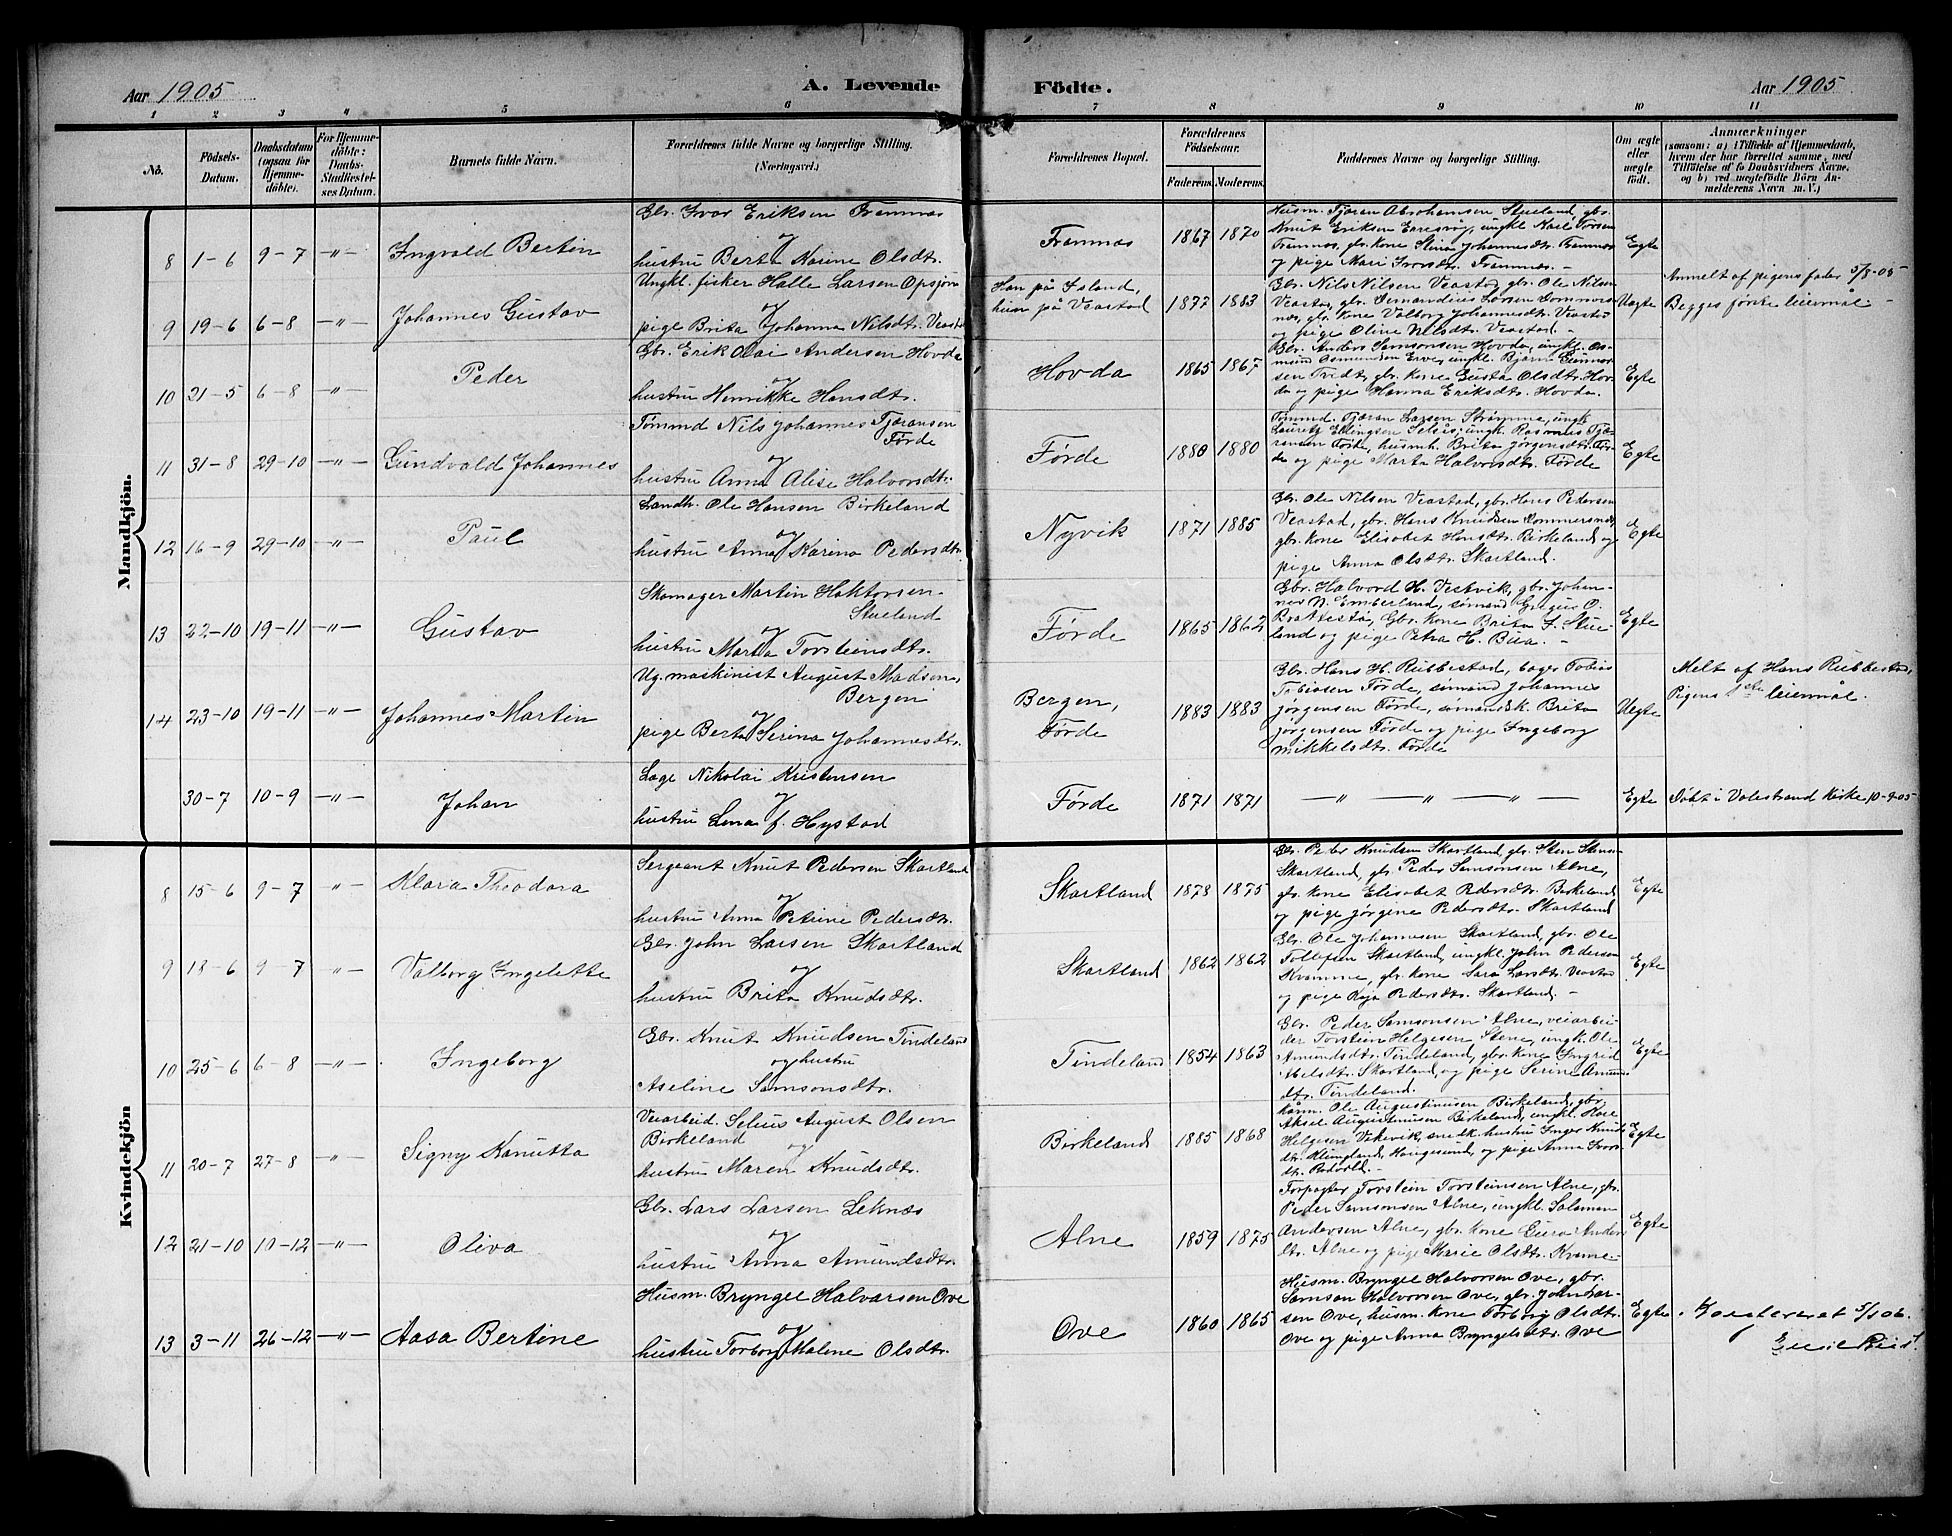 Aar 1905
A. Levende Födte.
Aar 1905
1 2 3 4 5 6 7 8 9 10 11
No.
Födsels-Datum.
Daabsdatum (ogsaa for Hjemme-döbte).
For Hjemme-döbte: Daabs-Stadfæstel-ses Datum.
Barnets fulde Navn.
Forældrenes fulde Navne og borgerlige Stilling.
(Næringsvei.)
Forældrenes Bopæl.
Forældrenes Födselsaar.
Faderens. Moderens.
Faddernes Navne og borgerlige Stilling.
Om ægte eller uægte födt.
Anmærkninger
(saasom: a) i Tilfælde af Hjemmedaab,
hvem der har forrettet samme, med
Tilföielse af to Daabsvidners Navne,
og b) ved uægtefödte Börn An-
melderens Navn m. V.)
Mandkjön.
8 1-6 9-7 -"- Ingvald Bertin
Gbr. Ivar Eriksen Framnæs
og
hustru Berta Karine Olsdtr.
Framnæs 1867 1870
Husm. Tjøran Abrahamsen Stueland, gbr.
Knut Eriksen Erresvig, ungkl. Karl Torsen
Framnæs, gbr. kone Stina Johannesdtr. Framnæs
og pige Mari Ivarsdtr. Framnæs. -
Egte
9 19-6 6-8 -"- Johannes Gustav
Ungkl. fisker Halle Larsen Opsjøn
og
pige Brita Johanna Nilsdtr. Veastad
Han på Island,
hun på Veastad 1877 1883
Gbr. Nils Nilsen Veastad, gbr. Ole Nilsen
Veastad, gbr. Fernandius Larsen Lommers-
næs, gbr. kone Valborg Johannesdtr. Veastad
og pige Oline Nilsdtr. Veastad. -
Uegte
Anmelt af pigens fader 5/8-05
Begges første leiermål -
10 21-5 6-8 -"- Peder
Gbr. Erik Olai Andersen Hovda
og
hustru Henrikke Hansdtr.
Hovda 1865 1867
Gbr. Anders Samsonsen Hovda, ungkl. As-
mund Asmundsen Erve, ungkl. Bjørn Gunnar-
sen Tvedt, gbr. kone Gusta Olsdtr. Hov-
da og pige Hanna Eriksdtr. Hovda.
Egte
11 31-8 29-10 -"- Gundvald Johannes
Tømmd. Nils Johannes Tjøransen
Førde
og
hustru Anna Alise Halvorsdtr.
Førde 1880 1880
Tømmd. Tjøran Larsen Strømma, ungk.
Lauretz Ellingsen Selsås, ungk. Rasmus Tjø-
ransen Førde, husmk. Brita Jørgensdtr. Før-
de og pige Marta Halvorsdtr. Førde
Egte
12 16-9 29-10 -"- Paul
Landh. Ole Hansen Birkeland
og
hustru Anna Karina Pedersdtr.
Nyvik 1871 1885
Gbr. Ole Nilsen Veastad, gbr. Hans Pedersen
Veastad, gbr. Hans Knudsen Lommersnæs,
gbr. kone Elisabet Hansdtr. Birkeland og
pige Anna Olsdtr. Skartland.
Egte
13 22-10 19-11 -"- Gustav
Skomager Martin Haktorsen
Stueland
og
hustru Marta Torsteinsdtr.
Førde 1865 1862
Gbr. Halvord H. Vestvik, gbr. Johan-
nes N. Emberland, sømand Gregus O.
Brattestø, Gbr. kone Brita J. Stue-
land og pige Petra H. Bua. -
Egte
14 23-10 19-11 -"- Johannes Martin
Ug. maskinist August Madsen,
Bergen
og
pige Berta Serina Johannesdtr.
Bergen,
Førde 1883 1883
Gbr. Hans H. Rubbestad, bager Tobias
Tobiasen Førde, sømand Johannes
Jørgensen Førde, sømandsk. Brita
Jørgensen Førde og pige Ingeborg
Mikkelsdtr. Førde
Uegte
Melt af Hans Rubbestad,
Pigens 1ste leiermål.
30-7 10-9 -"- Johan
Lage Nikolai Kristensen
og
hustru Lena f. Hystad
Førde 1871 1871
-"- -"- -"-
Egte
Døbt i Valestrand Kirke 10-9-05
Kvindekjön
8 15-6 9-7 -"- Klara Theodora
Sergeant Knut Pedersen Skartland
og
hustru Anna Petrine Pedersdtr.
Skartland 1878 1875
Gbr. Peder Knudsen Skartland, gbr. Sten Stens-
Skartland, gbr. Peder Samsonsen Alne,
gbr. kone Elisabet Pedersdtr. Birkeland
og pige Jørgine Pedersdtr. Skartland
Egte
9 18-6 9-7 -"- Valborg Ingelette
Gbr. John Larsen Skartland
og
hustru Brita Knudsdtr.
Skartland 1862 1862
Gbr. Ole Johannesen Skartland, gbr. Ole
Tollefsen Skartland, ungkl. John Pedersen
Kvamme, gbr. kone Sara Larsdtr. Veastad
og pige Kaja Pedersdtr. Skartland. -
Egte
10 25-6 6-8 -"- Ingeborg
Gbr. Knut Knudsen Tindeland
og hustru
Aseline Samsonsdtr.
Tindeland 1854 1863
Gbr. Peder Samsonsen Alne, veiarbei-
der Torstein Helgesen Stene, ungk. Ole
Amundsdtr. Tindeland, gbr. kone Ingrid
Nilsdtr. Skartland, og pige Serine Amunds-
dtr. Tindeland.
Egte
11 20-7 27-8 -"- Signy Kanutta
Veiarbeid. Selius August Olsen
Birkeland og
hustru Maren Knudsdtr.
Birkeland 1885 1868
Kårm. Ole Augustinusen Birkeland, gbr.
Aksel Augustinusen Birkeland, ungkl. Kare
Helgesen Vikevik, snedk. hustru Inger Knuds-
dtr. Klungland, Haugesund, og pige Anna Ivars-
dtr. Rødvold. -
Egte
12 21-10 10-12 -"- Oliva
Gbr. Lars Larsen Leknæs
og
hustru Anna Amundsdtr.
Alne 1859 1875
Forpagter Torstein Torsteinsen Alne, gbr.
Peder Samsonsen Alne, ungkl. Salamon
Andersen Alne, gbr. kone Guro Anders-
dtr. Alne og pige Marie Olsdtr. Kvame.
Egte
13 3-11 26-12 -"- Aasa Bertine
Husm. Bryngel Halvarsen Ove
og
hustru Torborg Malene Olsdtr.
Ove 1860 1865
Husm. Bryngel Halvorsen Ove, gbr.
Samson Halvorsen Ove, gbr. John Lar-
sen Ove, husm. kone Torborg Olsdtr.
Ove og pige Anna Bryngelsdtr. Ove
Egte
Konfereret 5/1 06.